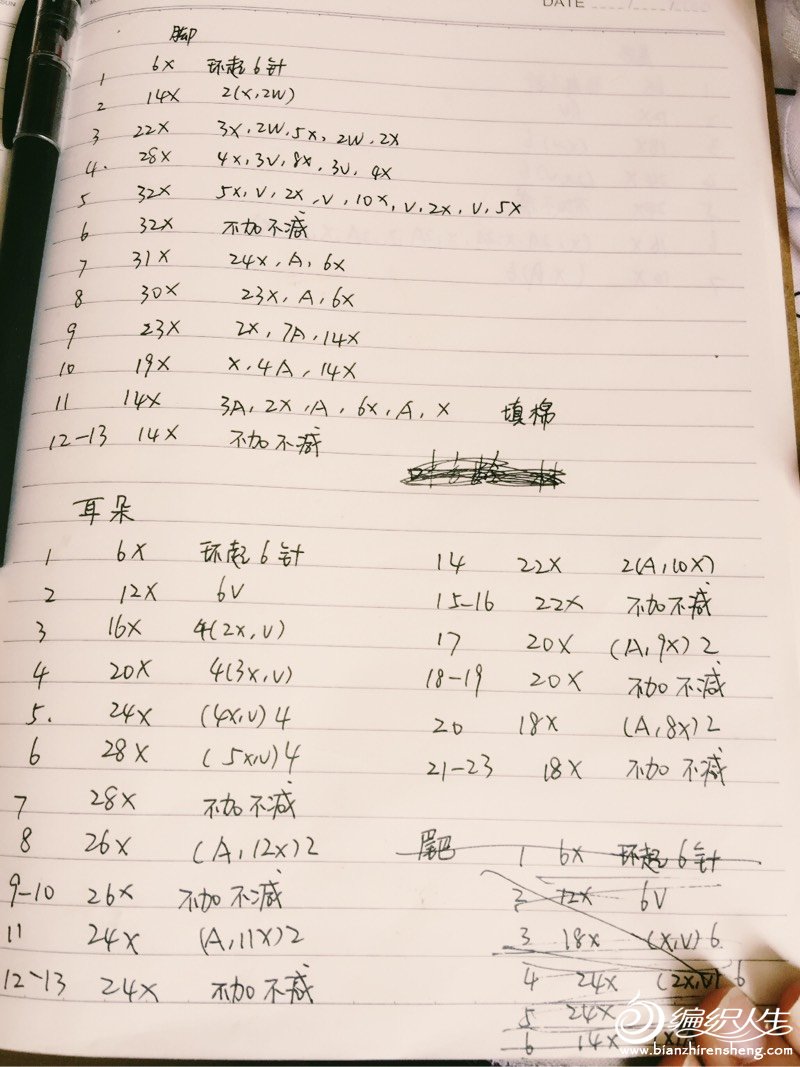 SUN
DATE
脚
1 6X 环起6针
2 14X 2(X,2W)
3 22X 3X,2W,5X,2W,2X
4. 28X 4X,3V,8X,3V,4X
5 32X 5X,V,2X,V,10X,V,2X,V,5X
6 32X 不加不减
7 31X 24X,A,6X
8 30X 23X,A,6X
9 23X 2X,7A,14X
10 19X X,4A,14X
11 14X 3A,2X,A,6X,A,X 填棉
12-13 14X 不加不减
耳朵
1 6X 环起6针
2 12X 6V
3 16X 4(2X,V)
4 20X 4(3X,V)
5. 24X (4X,V)4
6 28X (5X,V)4
7 28X 不加不减
8 26X (A,12X)2
9-10 26X 不加不减
11 24X (A,11X)2
12-13 24X 不加不减
14 22X 2(A,10X)
15-16 22X 不加不减
17 20X (A,9X)2
18-19 20X 不加不减
20 18X (A,8X)2
21-23 18X 不加不减
尾巴
1 6X 环起6针
2 12X 6V
3 18X (X,V)6
4 24X (2X,V)6
5 24X
6 14X
编织人生
www.bianzhirensheng.com